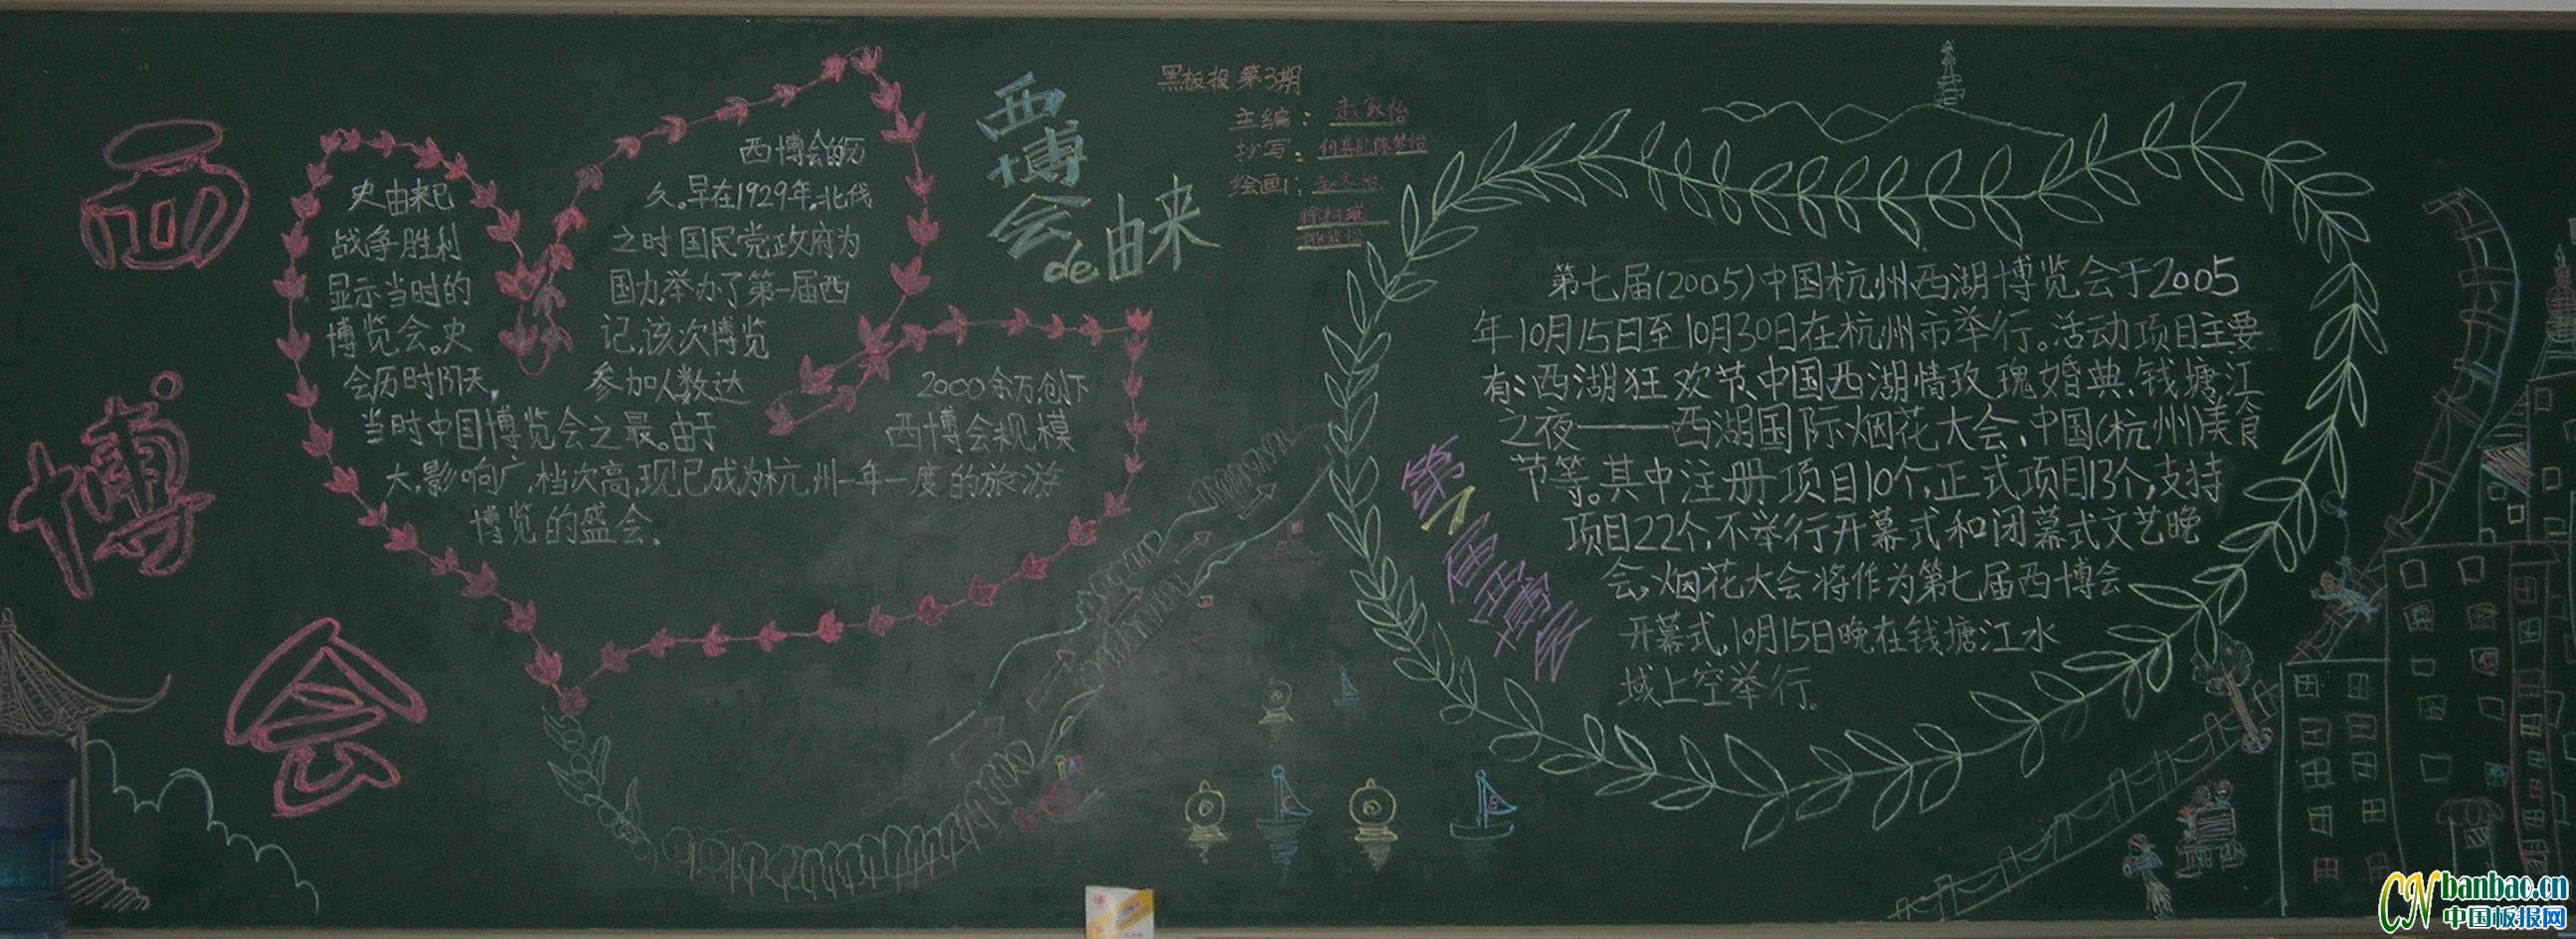 西
博
会
西博会
de由来
黑板报 第3期
主编：
抄写：
绘画：
西博会的历
史由来已
久。早在1929年,北伐
战争胜利
之时国民党政府为
显示当时的
国力,举办了第一届西
博览会。史
记,该次博览
会历时137天,
参加人数达
2000余万,创下
当时中国博览会之最。由于
西博会规模
大,影响广,档次高,现已成为杭州一年一度的旅游
博览的盛会.
第7届西博会
第七届(2005)中国杭州西湖博览会于2005
年10月15日至10月30日在杭州市举行。活动项目主要
有:西湖狂欢节、中国西湖情玫瑰婚典、钱塘江
之夜——西湖国际烟花大会、中国(杭州)美食
节等。其中注册项目10个,正式项目13个,支持
项目22个,不举行开幕式和闭幕式文艺晚
会,烟花大会将作为第七届西博会
开幕式,10月15日晚在钱塘江水
域上空举行。
CN banbao.cn
中国板报网